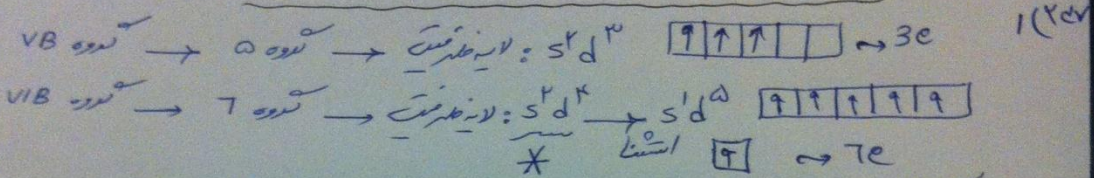 گروه VB → گروه ۵ → لایه ظرفیت : s²d³ ↑ ↑ ↑ ~ 3e
گروه VIB → گروه ۶ → لایه ظرفیت : s²d⁴ → s¹d⁵ ↑ ↑ ↑ ↑ ↑
* استثنا ↑ ~ ۶e